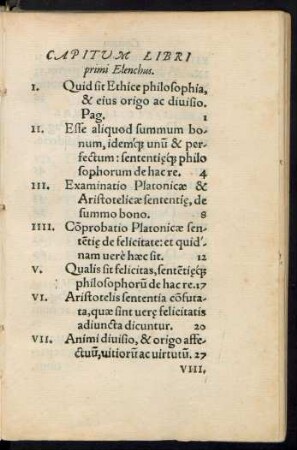 CAPITUM LIBRI
primi Elenchus.
I. Quid sit Ethice philosophia,
& eius origo ac diuisio.
Pag. 1
II. Esse aliquod summum bo-
num, idemq́; unũ & per-
fectum: sententięq́; philo
sophorum de hac re. 4
III. Examinatio Platonicæ &
Aristotelicæ sententię, de
summo bono. 8
IIII. Cõprobatio Platonicæ sen-
tẽtię de felicitate: et quid'
nam uerè hæc sit. 12
V. Qualis sit felicitas, sentẽtięq́;
philosophorũ de hac re. 17
VI. Aristotelis sententia cõfuta-
ta, quæ sint uerę felicitatis
adiuncta dicuntur. 20
VII. Animi diuisio, & origo affe-
ctuũ, uitiorũ ac uirtutũ. 27
VIII.